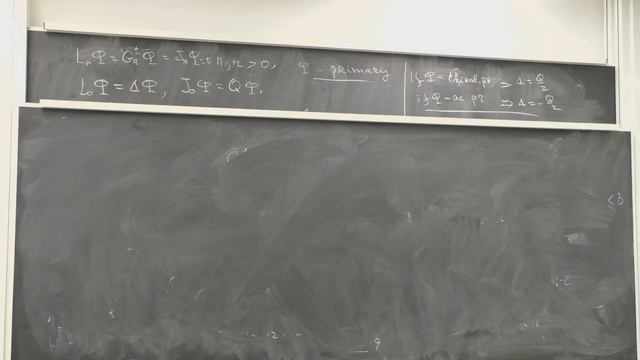 L_n Φ = G_r^± Φ = J_n Φ = 0 n, r > 0, Φ - primary
L_0 Φ = Δ Φ, J_0 Φ = Q Φ,
if Φ - chiral pr ⇒ Δ = Q/2
if Φ - ac pr ⇒ Δ = -Q/2
< 3
-2
9